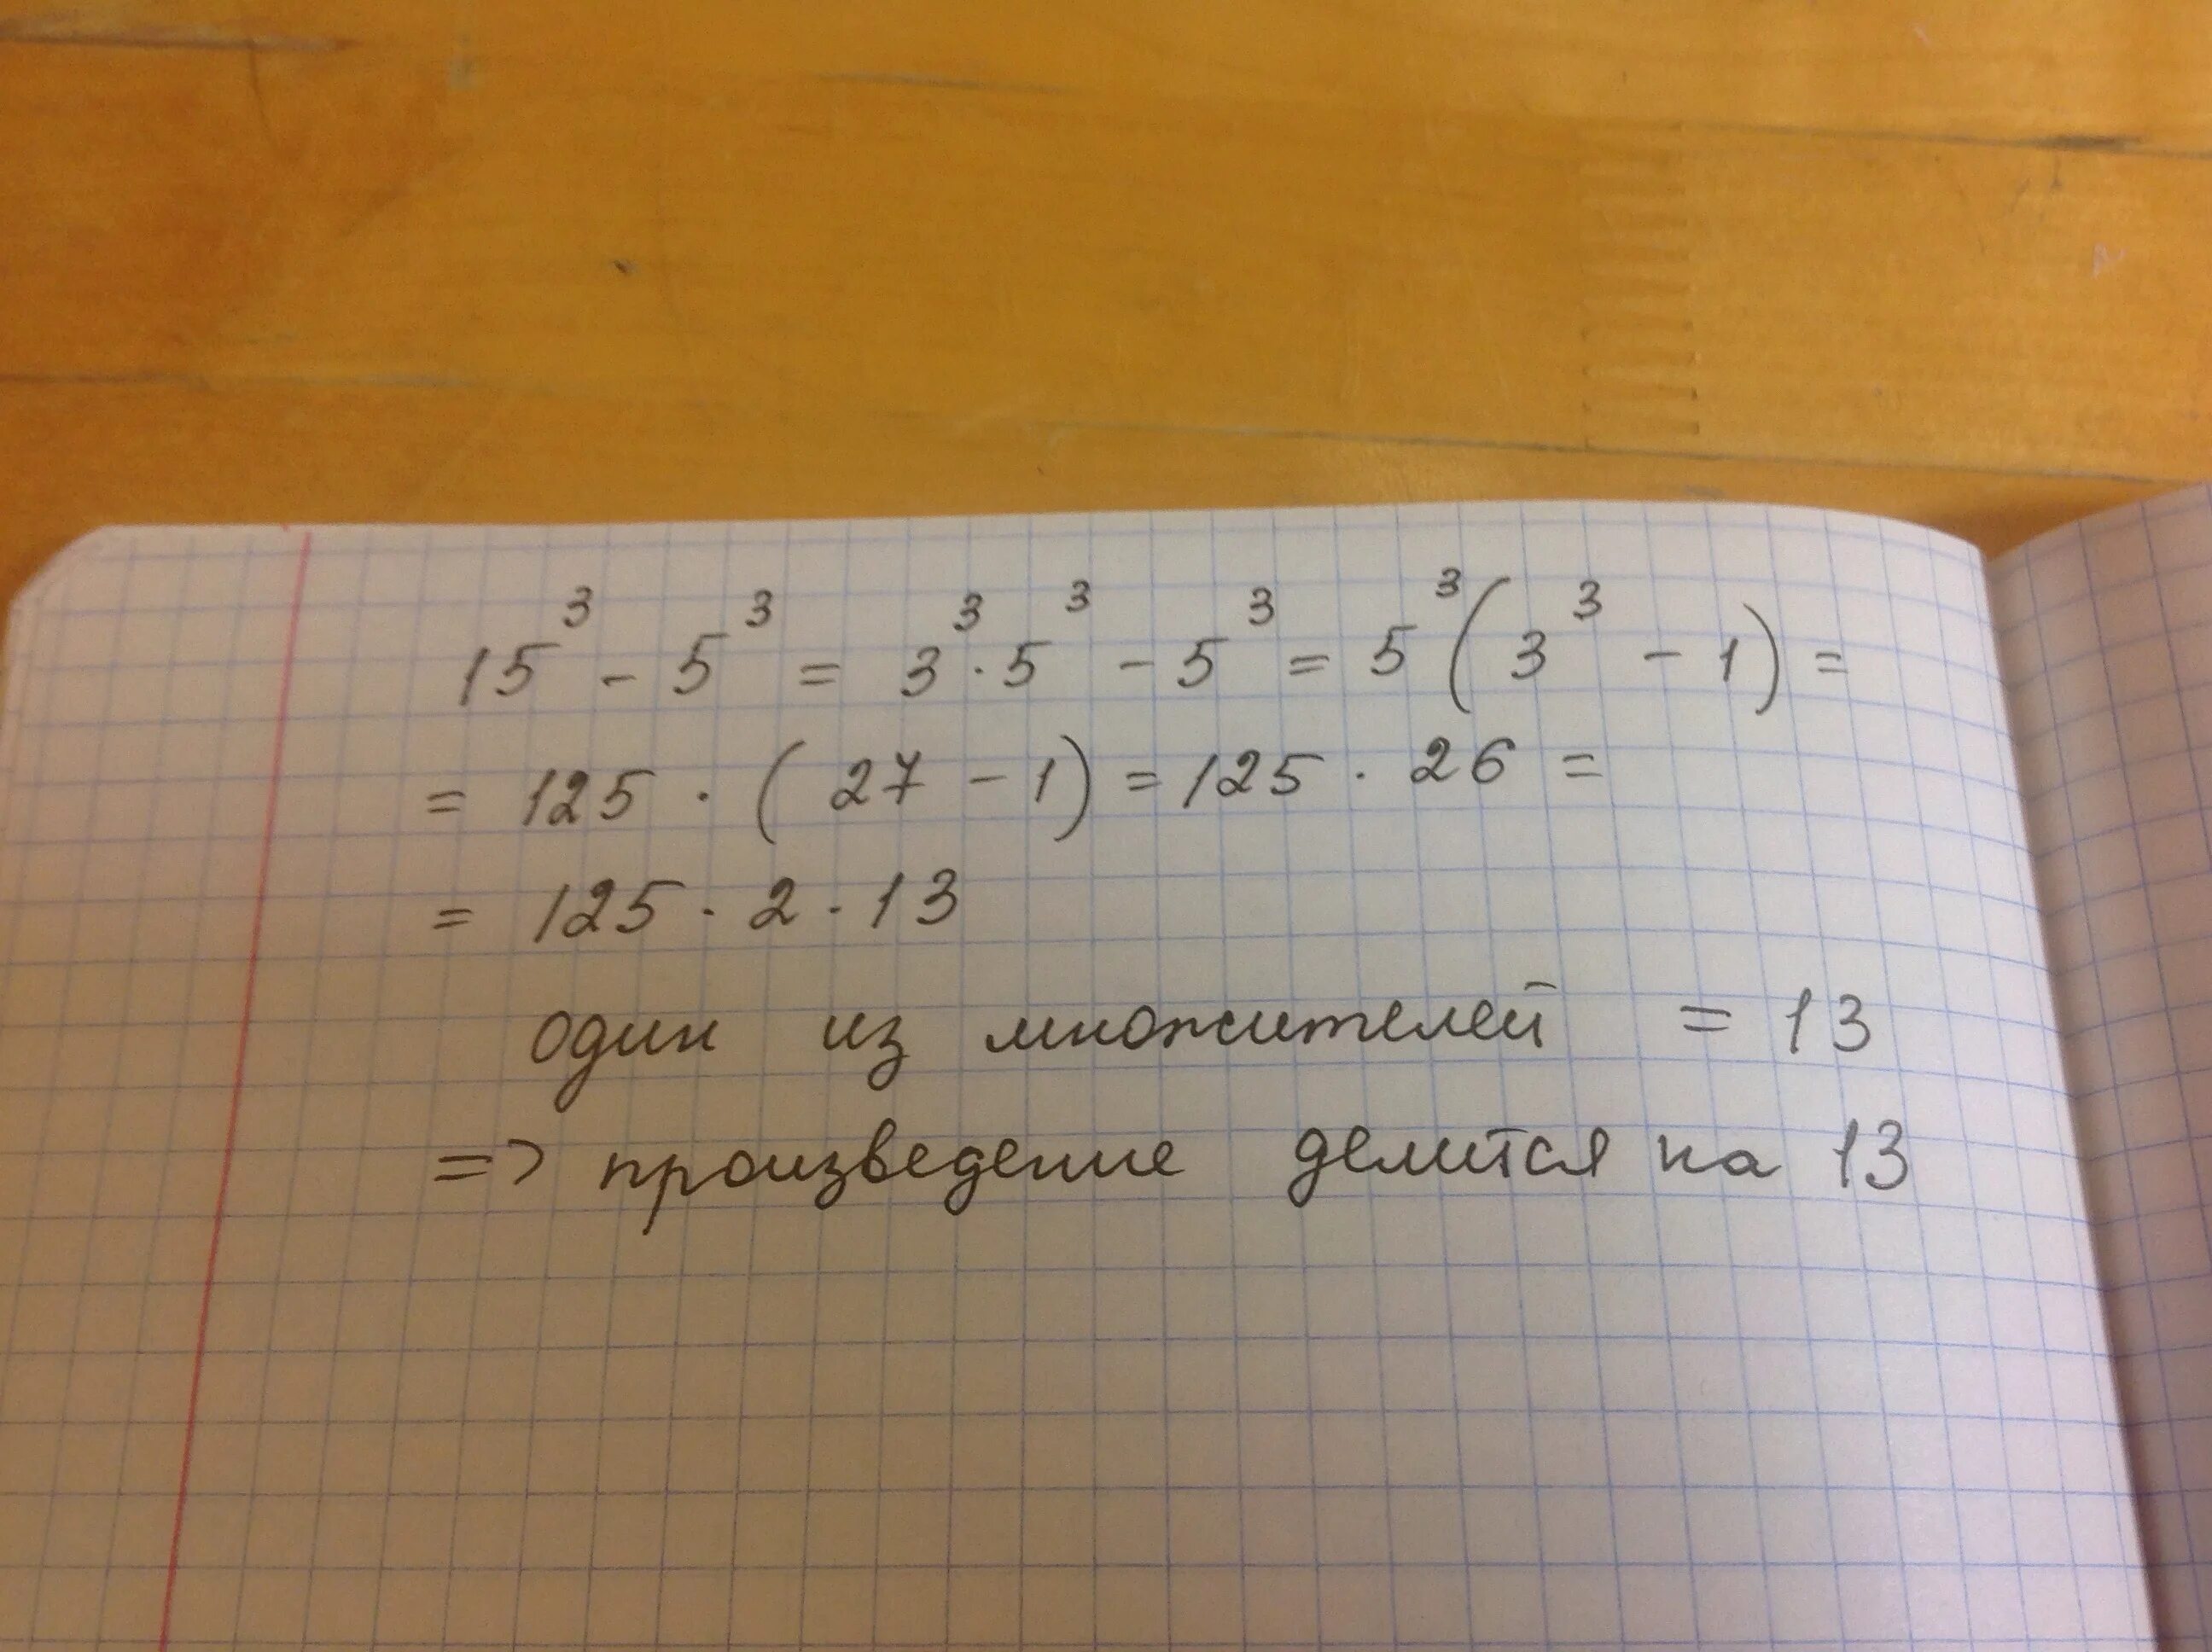 15³ - 5³ = 3³ · 5³ - 5³ = 5³ (3³ - 1) =
= 125 · (27 - 1) = 125 · 26 =
= 125 · 2 · 13
один из множителей = 13
=> произведение делится на 13